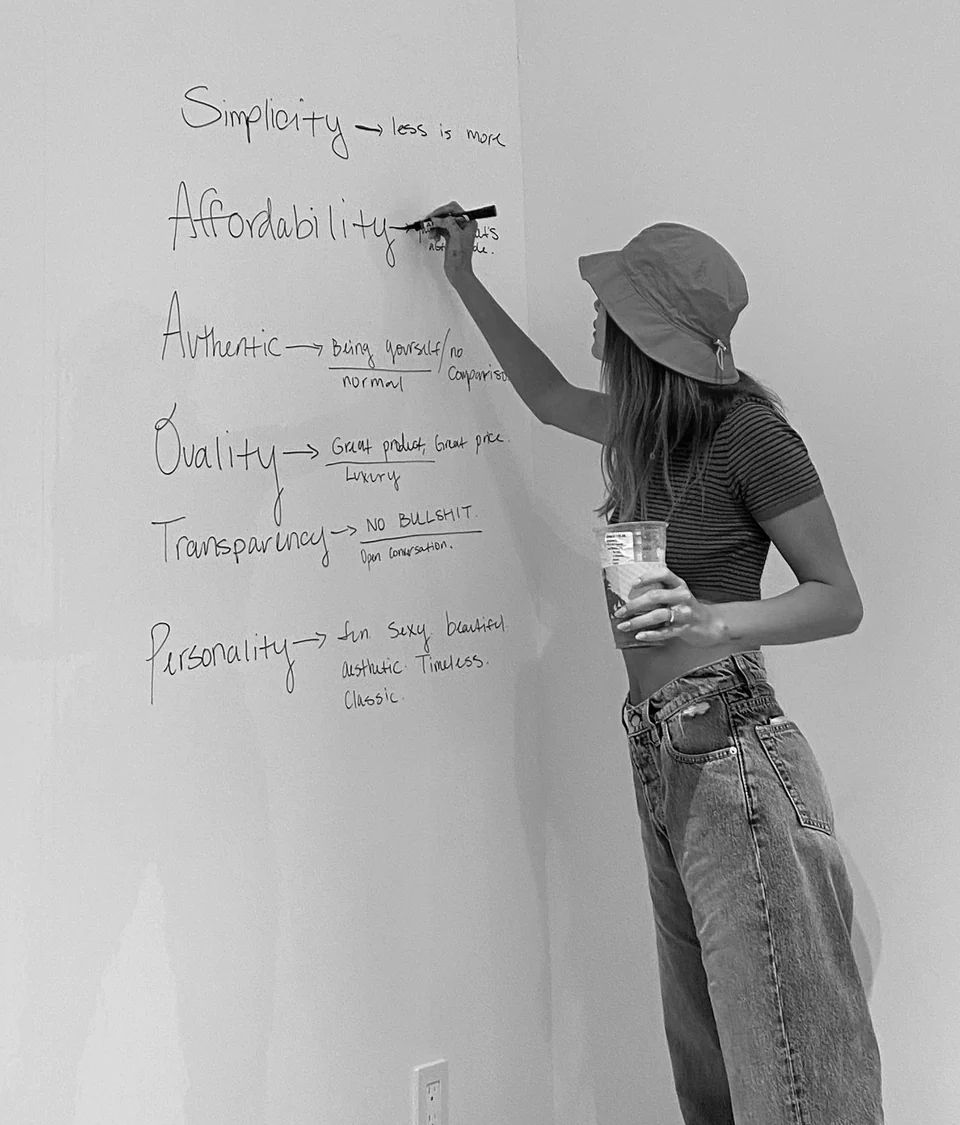 Simplicity → less is more
Affordability →
Authentic → Being yourself/no
normal Compariso
Quality → Great product, Great price.
Luxury
Transparency → NO BULLSHIT.
Open conversation.
Personality → fun. Sexy. beautiful.
aesthetic. Timeless.
Classic.